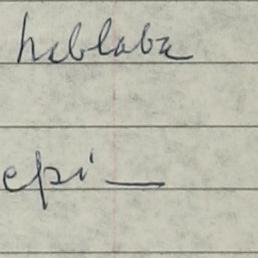 hablaba
epi—